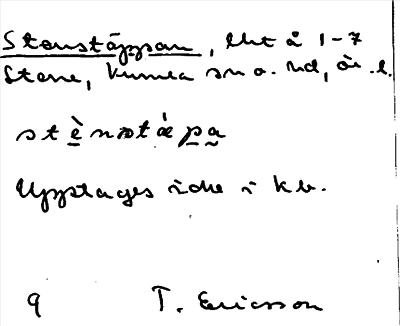 Stenstäppan, lht å 1-7
Stene, Kumla sn o. hd, Ör. l.
stènstä́pa
Upptages icke i kb.
9 T. Ericsson